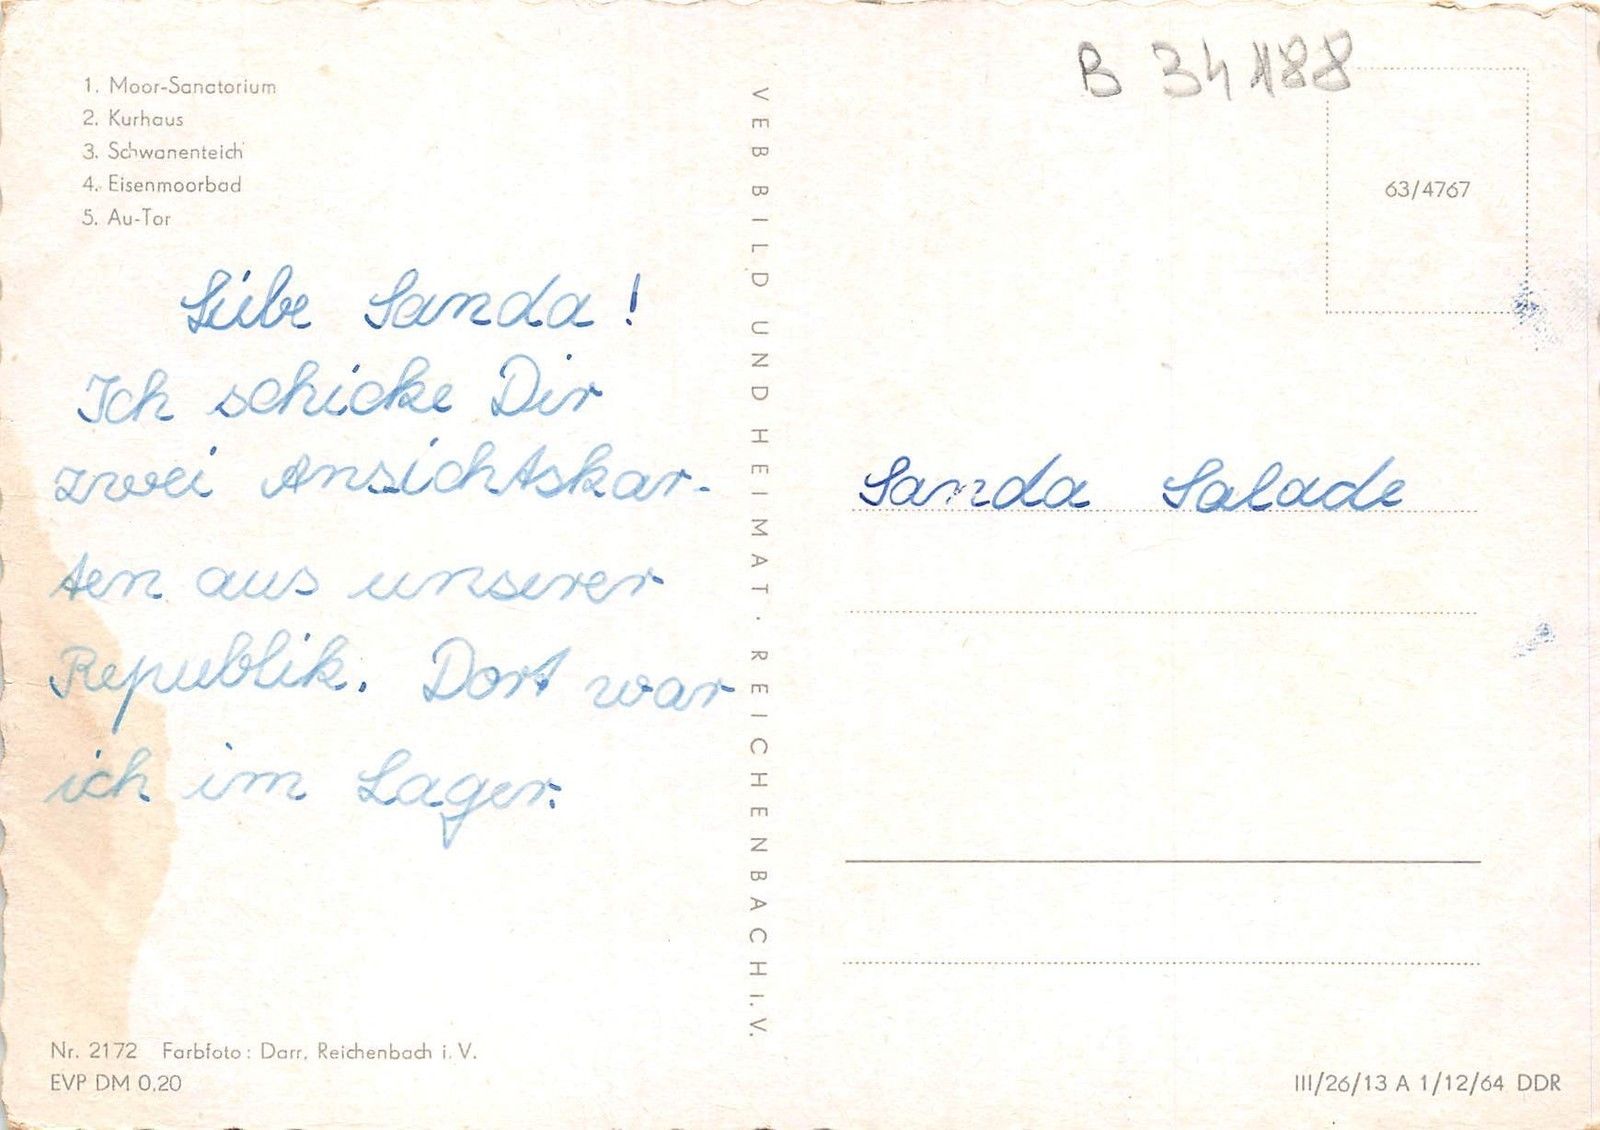 B 34188
1. Moor-Sanatorium
2. Kurhaus
3. Schwanenteich
4. Eisenmoorbad
5. Au-Tor
63/4767
Liebe Sanda!
Ich schicke Dir
zwei Ansichtskar-
ten aus unserer
Republik. Dort war
ich im Lager.
VEB BILD UND HEIMAT · REICHENBACH I. V.
Sanda Salade
Nr. 2172 Farbfoto: Darr, Reichenbach i. V.
EVP DM 0,20
III/26/13 A 1/12/64 DDR